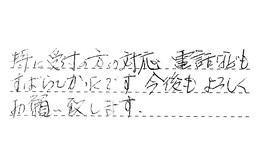 特に受付の方の対応、電話応対も
すばらしかったです。今後もよろしく
お願い致します。